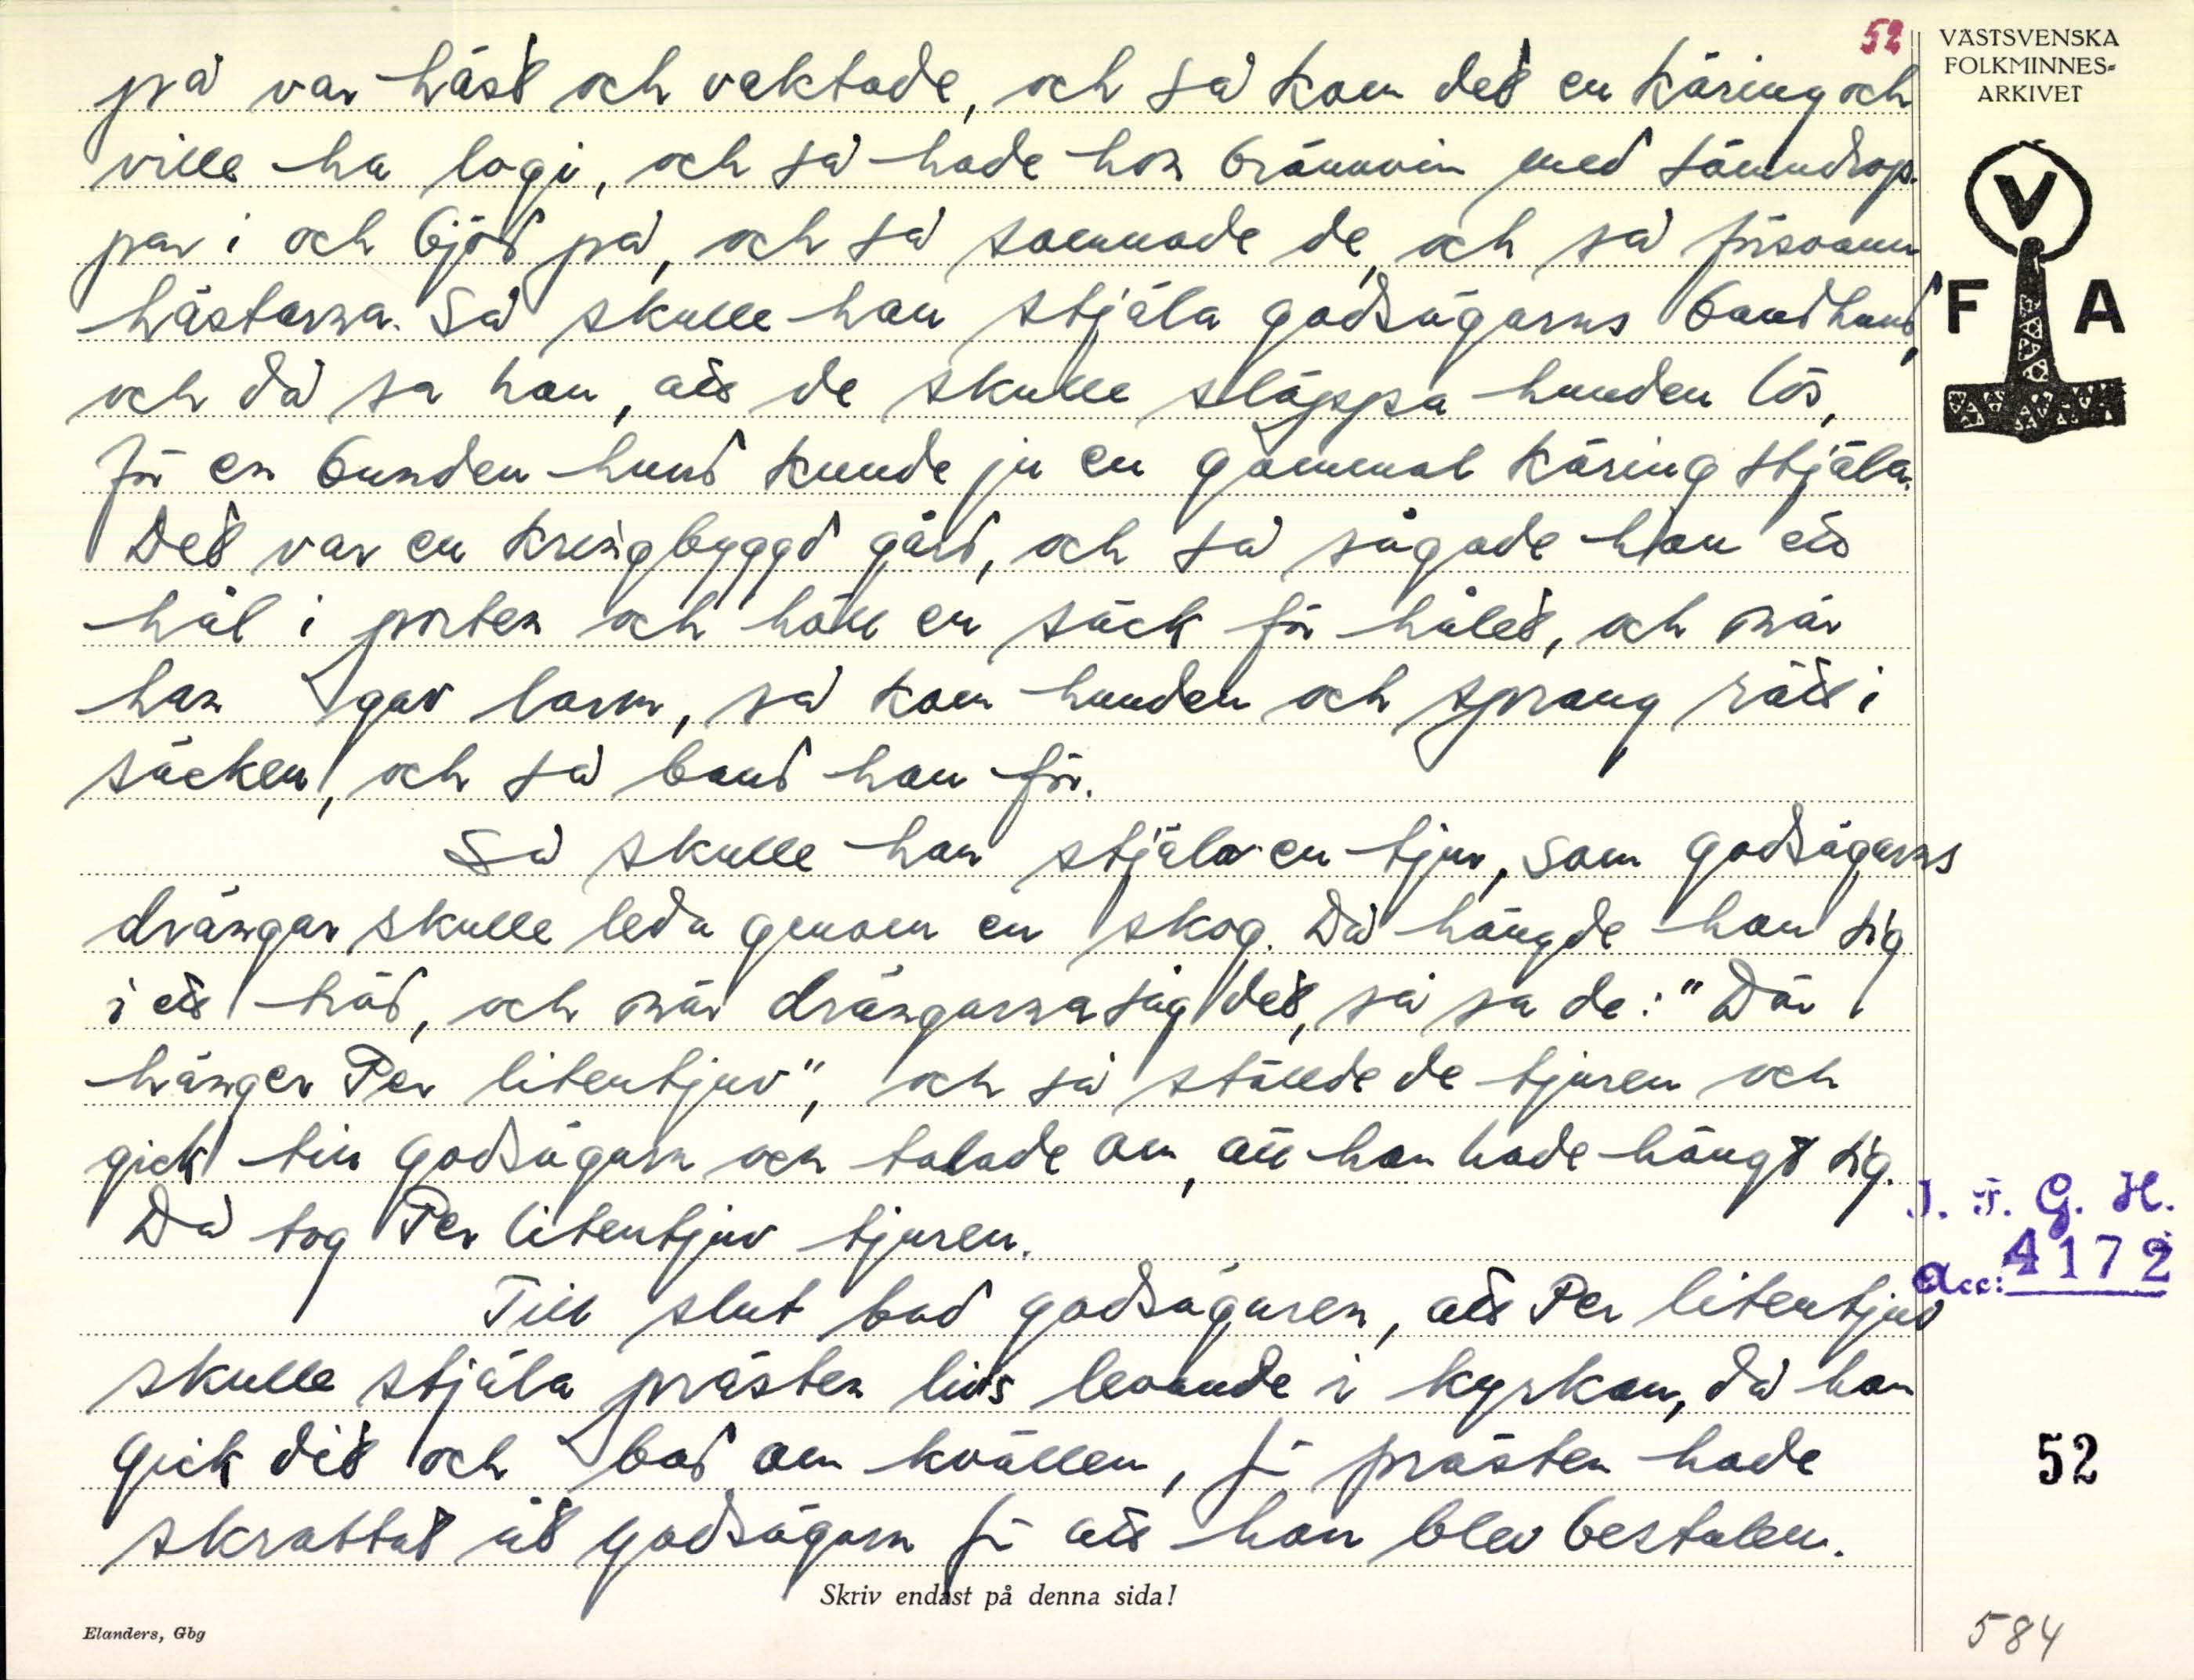 52
VÄSTSVENSKA
FOLKMINNES-
ARKIVET
V
F A
på var häst och vaktade, och så kom det en käring och
ville ha logi, och så hade hon brännvin med sömndrop-
par i och bjöd på, och så somnade de, och så försvann
hästarna. Så skulle han stjäla godsägarns bandhund,
och då sa han, att de skulle släppa hunden lös,
för en bunden hund kunde ju en gammal käring stjäla.
Det var en kringbyggd gård, och så sågade han ett
hål i porten och höll en säck för hålet, och när
han gav larm, så kom hunden och sprang rätt i
säcken, och så band han för.
Så skulle han stjäla en tjur, som godsägarns
drängar skulle leda genom en skog. Då hängde han sig
i ett träd, och när drängarna såg det, så sa de: "Där
hänger Per litentjuv", och så ställde de tjuren och
gick till godsägarn och talade om, att han hade hängt sig.
Då tog Per litentjuv tjuren.
Till slut bad godsägaren, att Per litentjuv
skulle stjäla prästen livs levande i kyrkan, då han
gick dit och bad om kvällen, för prästen hade
skrattat åt godsägarn för att han blev bestulen.
I. F. G. H.
Acc: 4172
52
Skriv endast på denna sida!
Elanders, Gbg
584